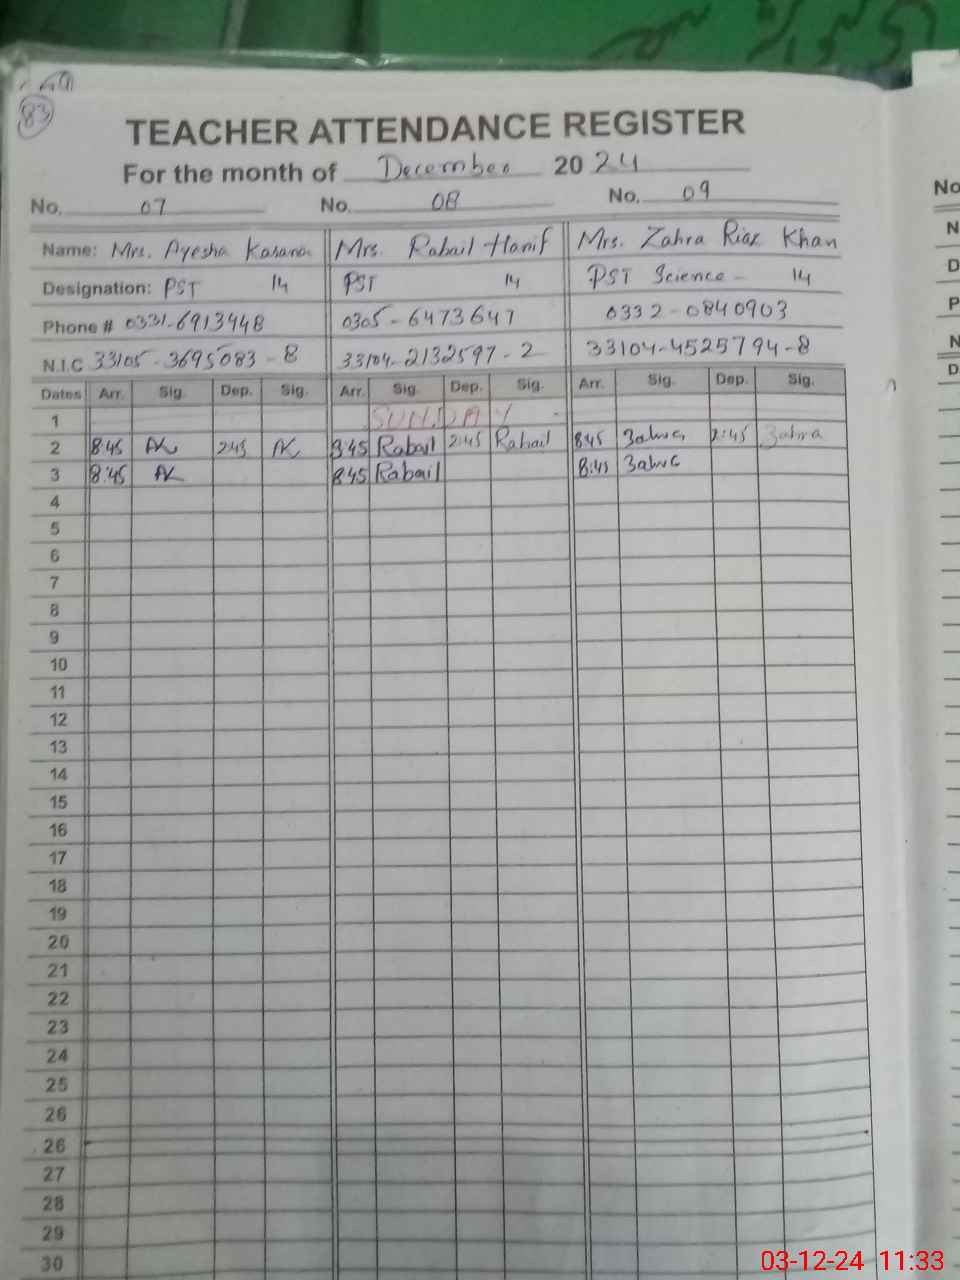 83
TEACHER ATTENDANCE REGISTER
For the month of December 2024
No. 07 No. 08 No. 09
Name: Mrs. Ayesha Kasana Mrs. Rabail Hanif Mrs. Zahra Riaz Khan
Designation: PST 14 PST 14 PST Science - 14
Phone # 0331-6913448 0305-6473647 0332-0840903
N.I.C 33105-3695083-8 33104-2132597-2 33104-4525794-8
Dates Arr. Sig. Dep. Sig. Arr. Sig. Dep. Sig. Arr. Sig. Dep. Sig.
1 SUNDAY
2 8:45 AK 2:45 AK 8:45 Rabail 2:45 Rabail 8:45 Zahra 2:45 Zahra
3 8:45 AK 8:45 Rabail 8:45 Zahra
4
5
6
7
8
9
10
11
12
13
14
15
16
17
18
19
20
21
22
23
24
25
26
26
27
28
29
30
No
N
D
P
N
D
03-12-24 11:33